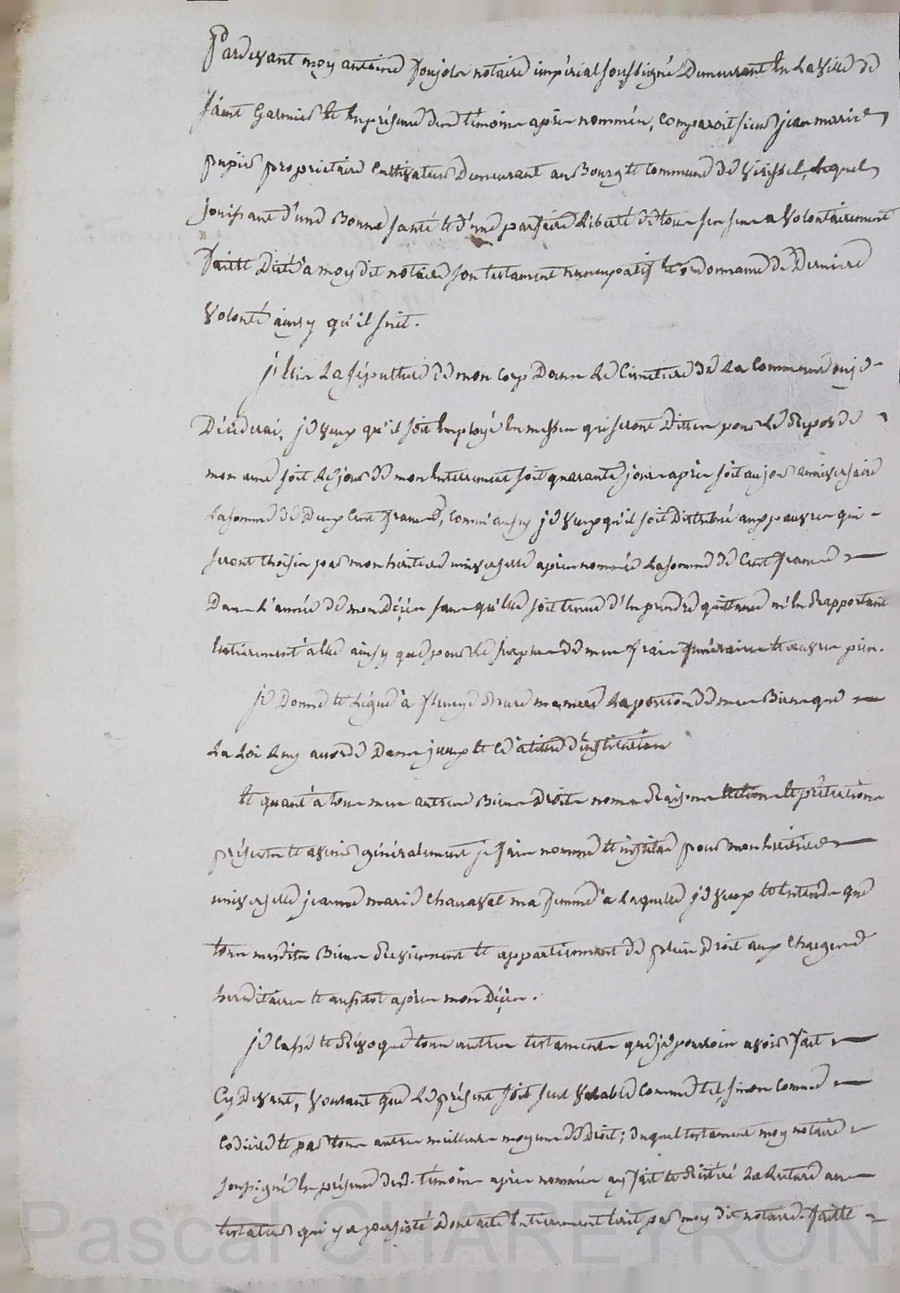 Pardevant moy antoine Poujola notaire impérial soussigné Demeurant En La Ville de
Saint Galmier et En présence des témoins après nommés, Comparoit sieur jean marie
pupier propriétaire Cultivateur Demeurant au Bourg et Commune de Virissel, Lequel
jouissant d'une Bonne santé et d'une parfaite Liberté de tous ses sens a Volontairement
fait et Dicté a moy dit notaire son testament nuncupatif et ordonnance de Derniere
Volonté ainsy qu'il suit.
j'Elis La sépulture de mon Corps Dans Le Cimetiere de La Commune ou je
Décéderai, je Veux qu'il soit Employé En messes qui seront Dittes pour Le Repos de
mon ame soit Le jour de mon Enterrement soit quarante jours après soit au jour anniversaire
La somme de Deux Cent francs, Comm'aussy je Veux qu'il soit Distribué aux pauvres qui
seront Choisis par mon heritiere universelle après nommée La somme de Cent francs
Dans L'année de mon Décès sans qu'elle soit tenue d'En prendre quittance m'En Rapportant
Entierement a Elle ainsy que pour Le surplus de mes frais funéraires et œuvres pies.
je Donne et Lègue a ma mere La portion de mes Biens que
La Loi Luy accorde Dans iceux et Ce a titre d'institution
Et quant a tous mes autres Biens Droits noms Raisons actions et prétentions
présents et avenir généralement je fais nomme et institue pour mon héritiere
universelle jeanne marie Chanavat ma femme a Laquelle je Veux et Entends que
tous mesdits Biens Reviennent et appartiennent de plein Droit aux Charges
hereditaires et aussitot après mon Décès.
je Casse et Révoque tous autres testaments que je pourrois avoir fait
Cy Devant, Voulant que Le présent soit seul Valable Comme tel, sinon Comme
Codicile et par tous autres meilleurs moyens de Droit; Duquel testament moy notaire
soussigné En présence desd. témoins après nommés ay fait et Réitéré La Lecture au
testateur qui y a persisté Dont acte Entierement Ecrit par moy dit notaire. fait et
Pascal CHAREYRON